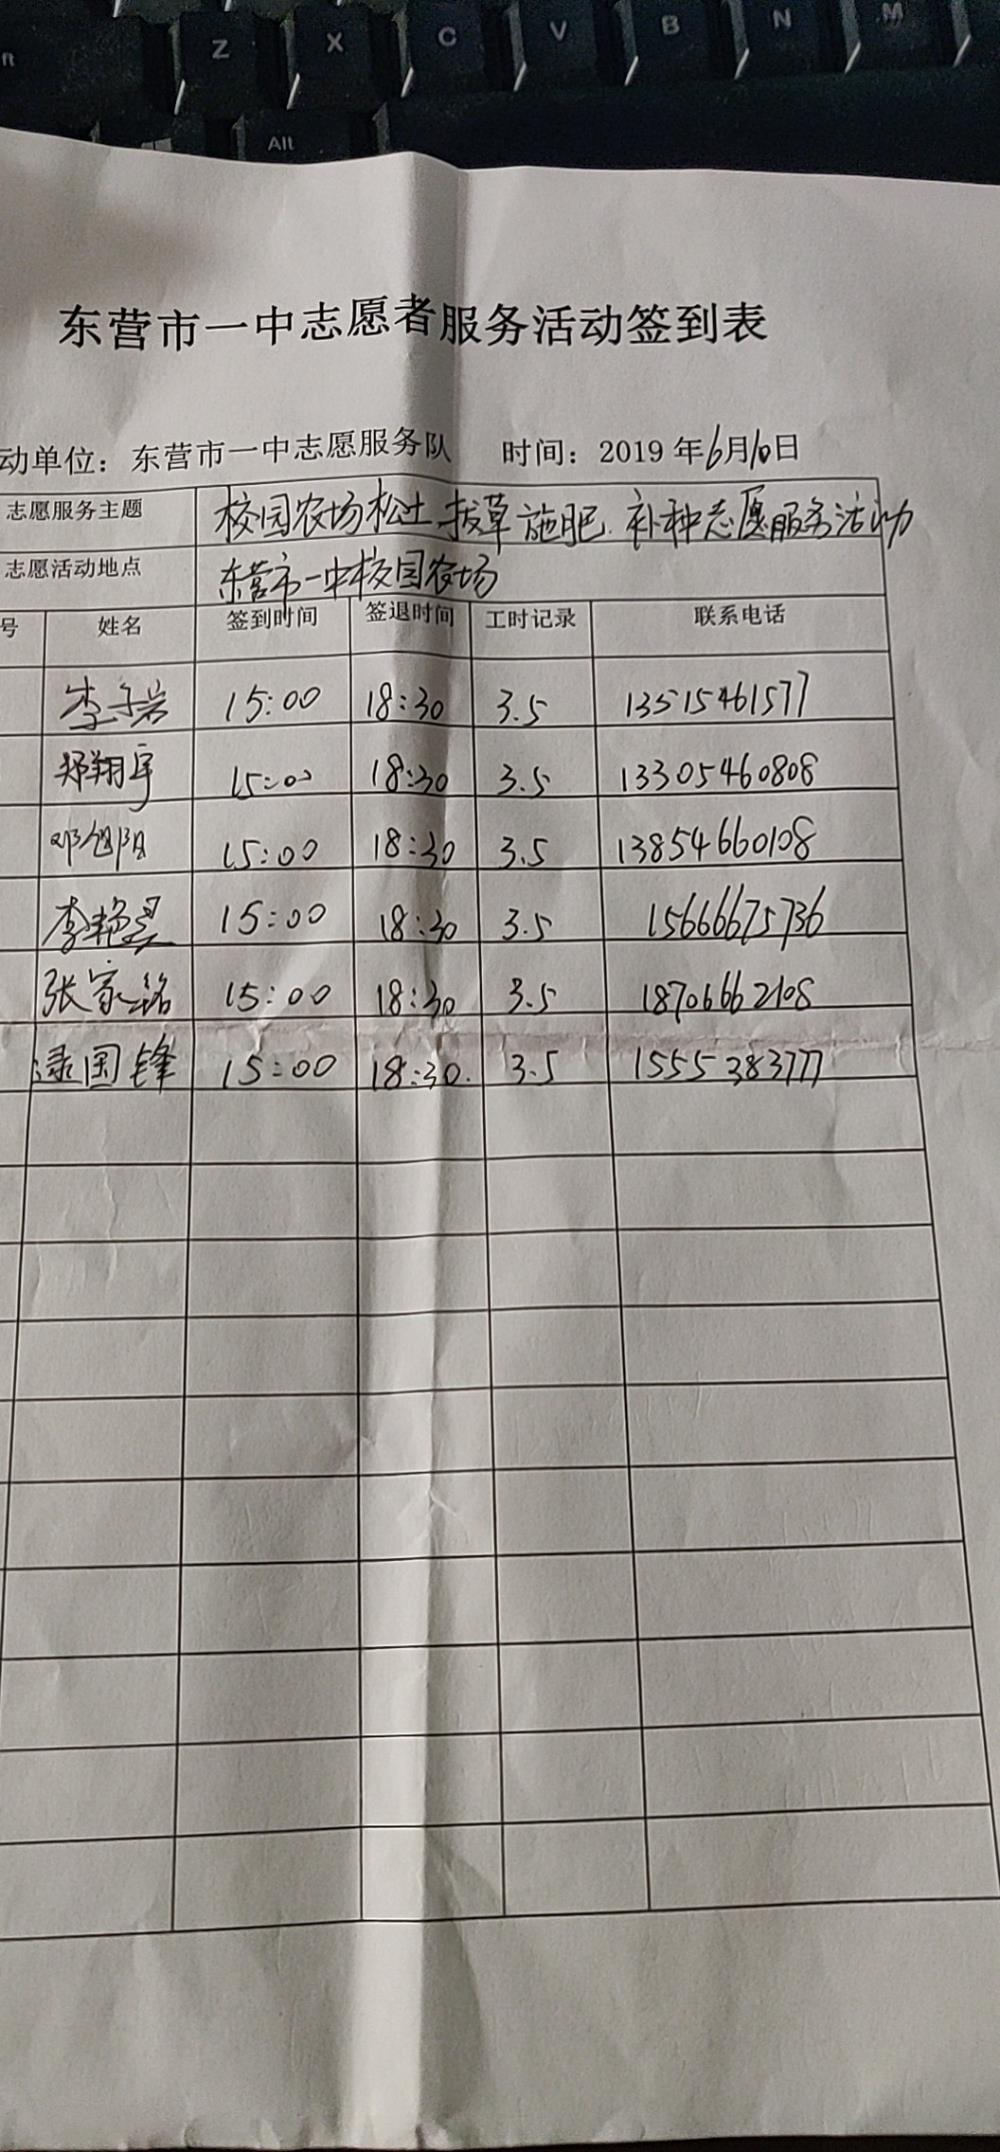 R Z X C V B N M
Alt
东营市一中志愿者服务活动签到表
动单位：东营市一中志愿服务队 时间：2019年6月10日
志愿服务主题 校园农场松土、拔草施肥、补种志愿服务活动
志愿活动地点 东营市一中校园农场
号 姓名 签到时间 签退时间 工时记录 联系电话
李子岩 15:00 18:30 3.5 13515461577
郑翔宇 15:00 18:30 3.5 13305460808
邓旭阳 15:00 18:30 3.5 13854660108
李艳昊 15:00 18:30 3.5 15666675736
张家铭 15:00 18:30 3.5 18706662108
逯国锋 15:00 18:30. 3.5 15553383777